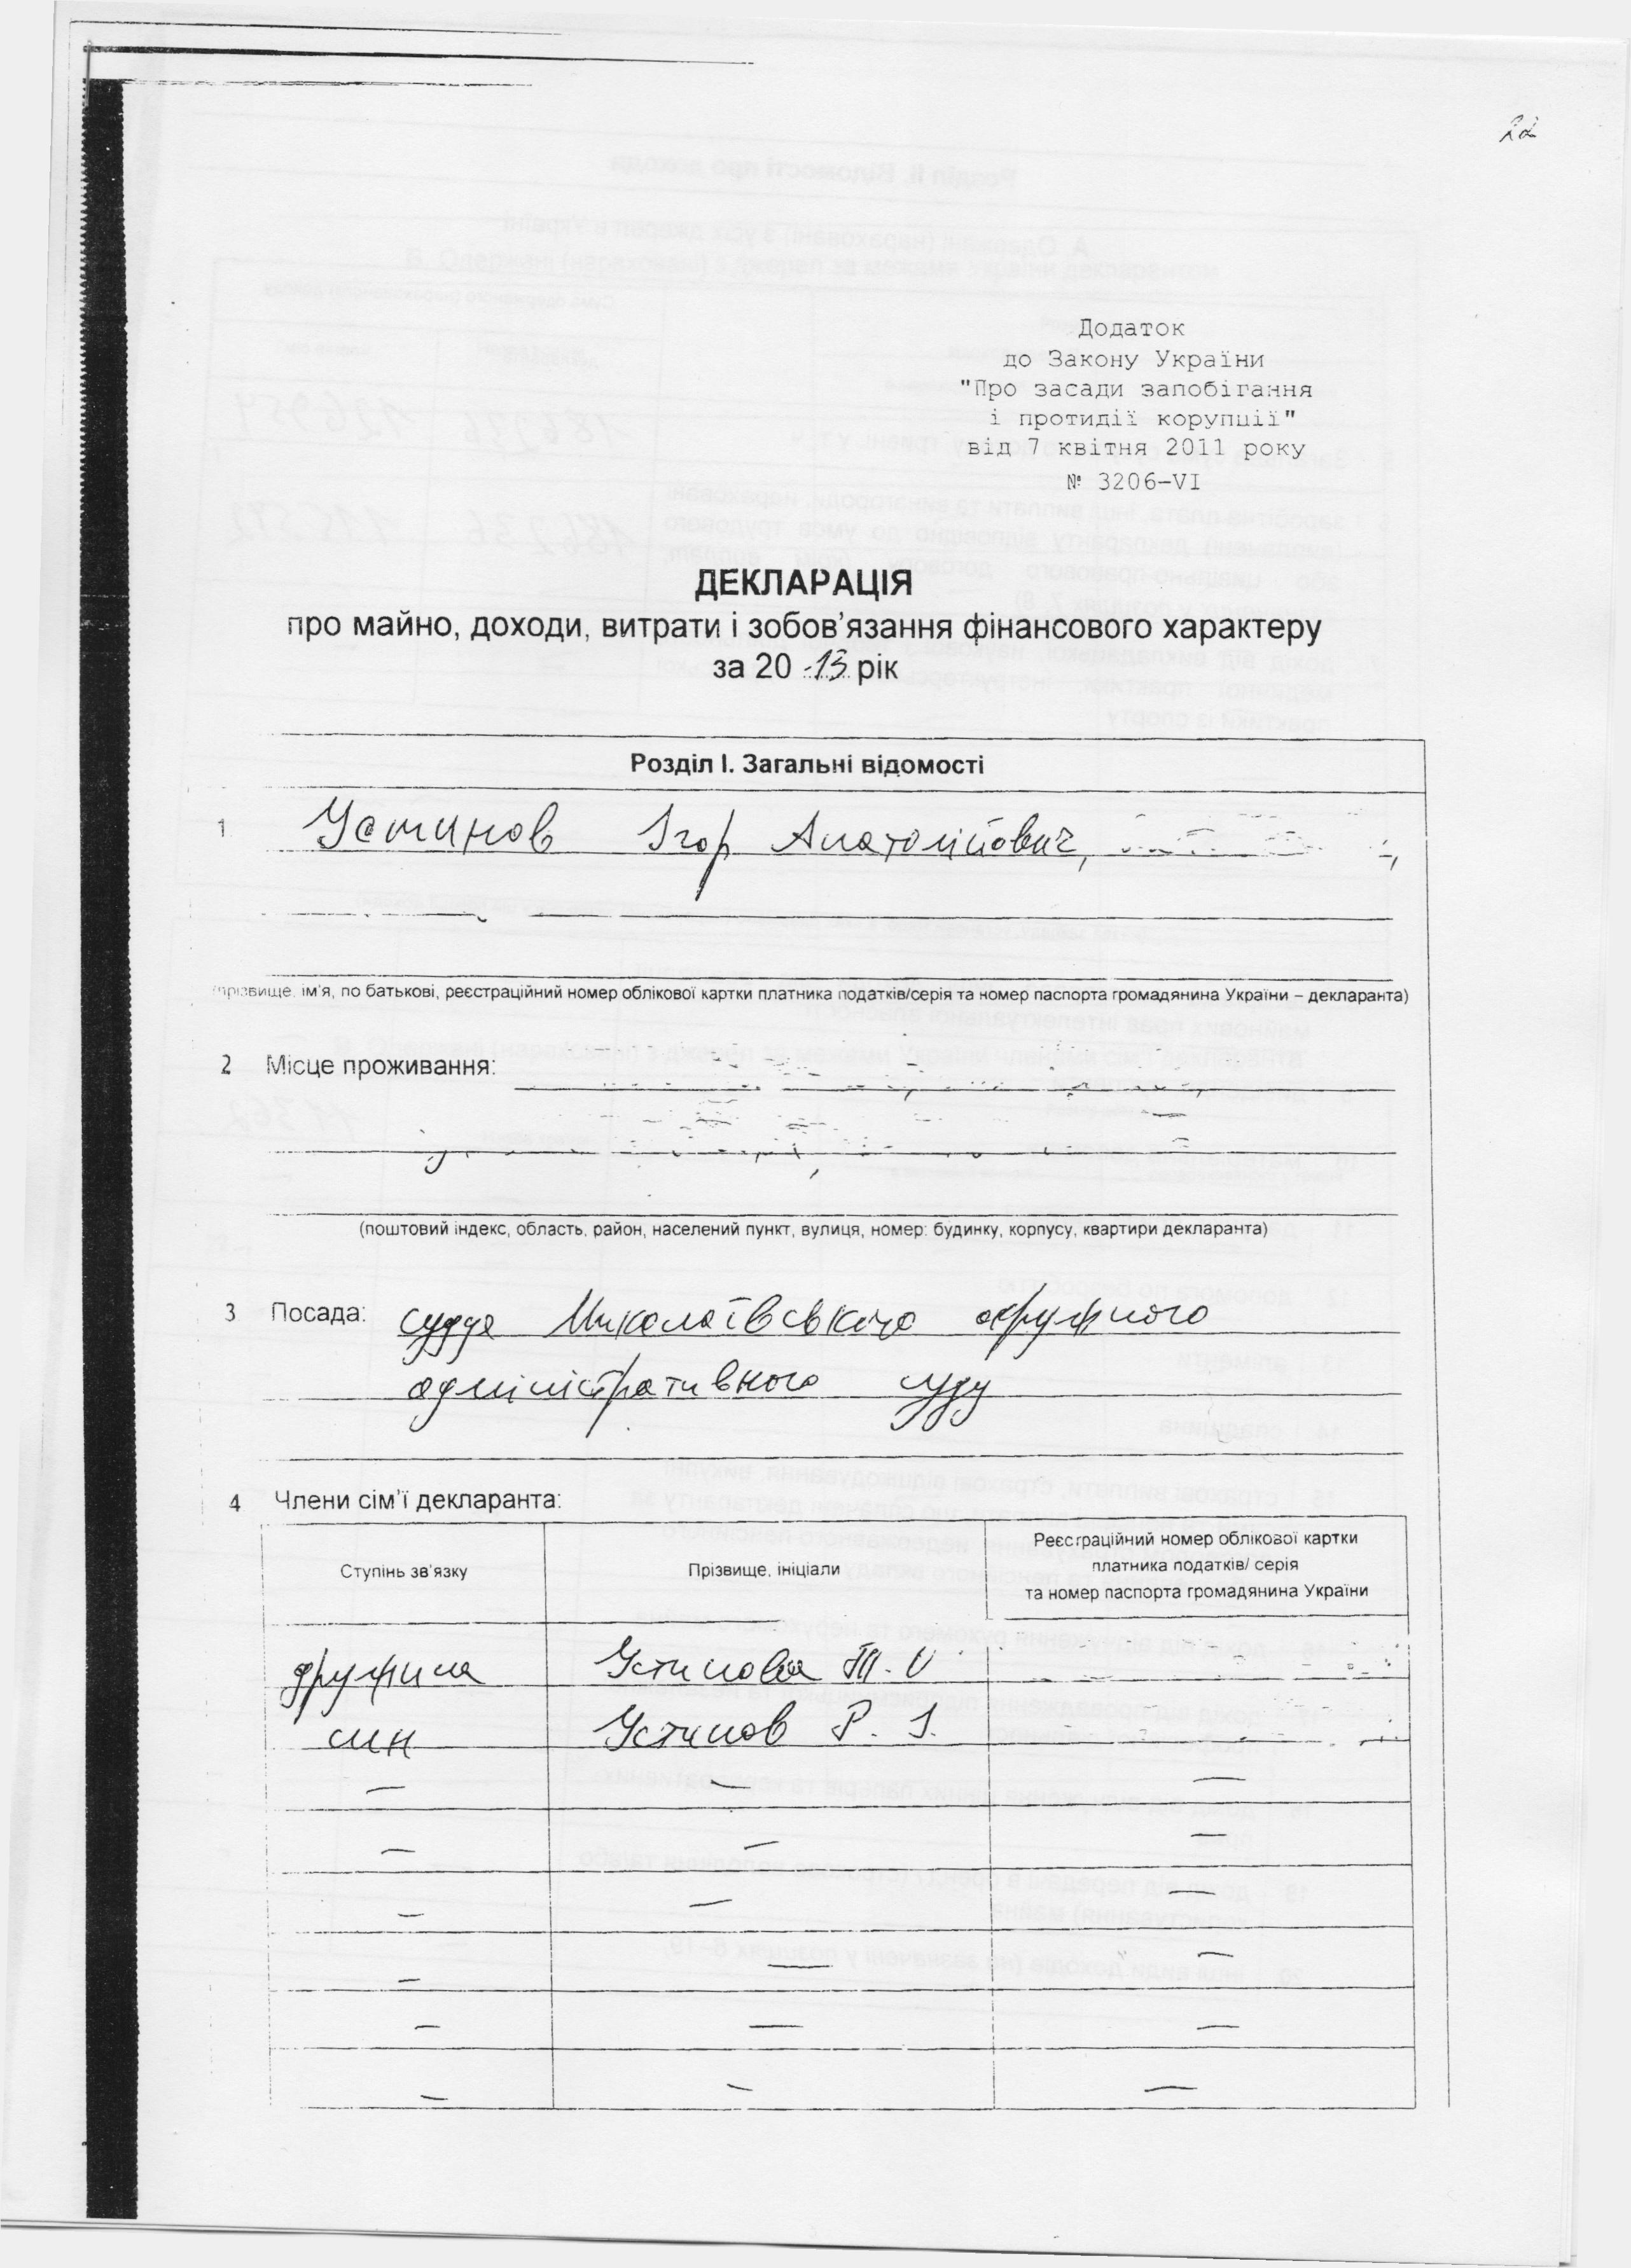 Додаток
до Закону України
"Про засади запобігання
і протидії корупції"
від 7 квітня 2011 року
№ 3206-VI
ДЕКЛАРАЦІЯ
про майно, доходи, витрати і зобов'язання фінансового характеру
за 2013 рік
Розділ І. Загальні відомості
1 Устинов Ігор Анатолійович,
(прізвище, ім'я, по батькові, реєстраційний номер облікової картки платника податків/серія та номер паспорта громадянина України – декларанта)
2 Місце проживання:
(поштовий індекс, область, район, населений пункт, вулиця, номер: будинку, корпусу, квартири декларанта)
3 Посада: суддя Миколаївського окружного
адміністративного суду
4 Члени сім'ї декларанта:
Ступінь зв'язку Прізвище, ініціали Реєстраційний номер облікової картки
платника податків/ серія
та номер паспорта громадянина України
дружина Устинова Т.
син Устинов Р. І.
— — —
— — —
— — —
— — —
— — —
— — —